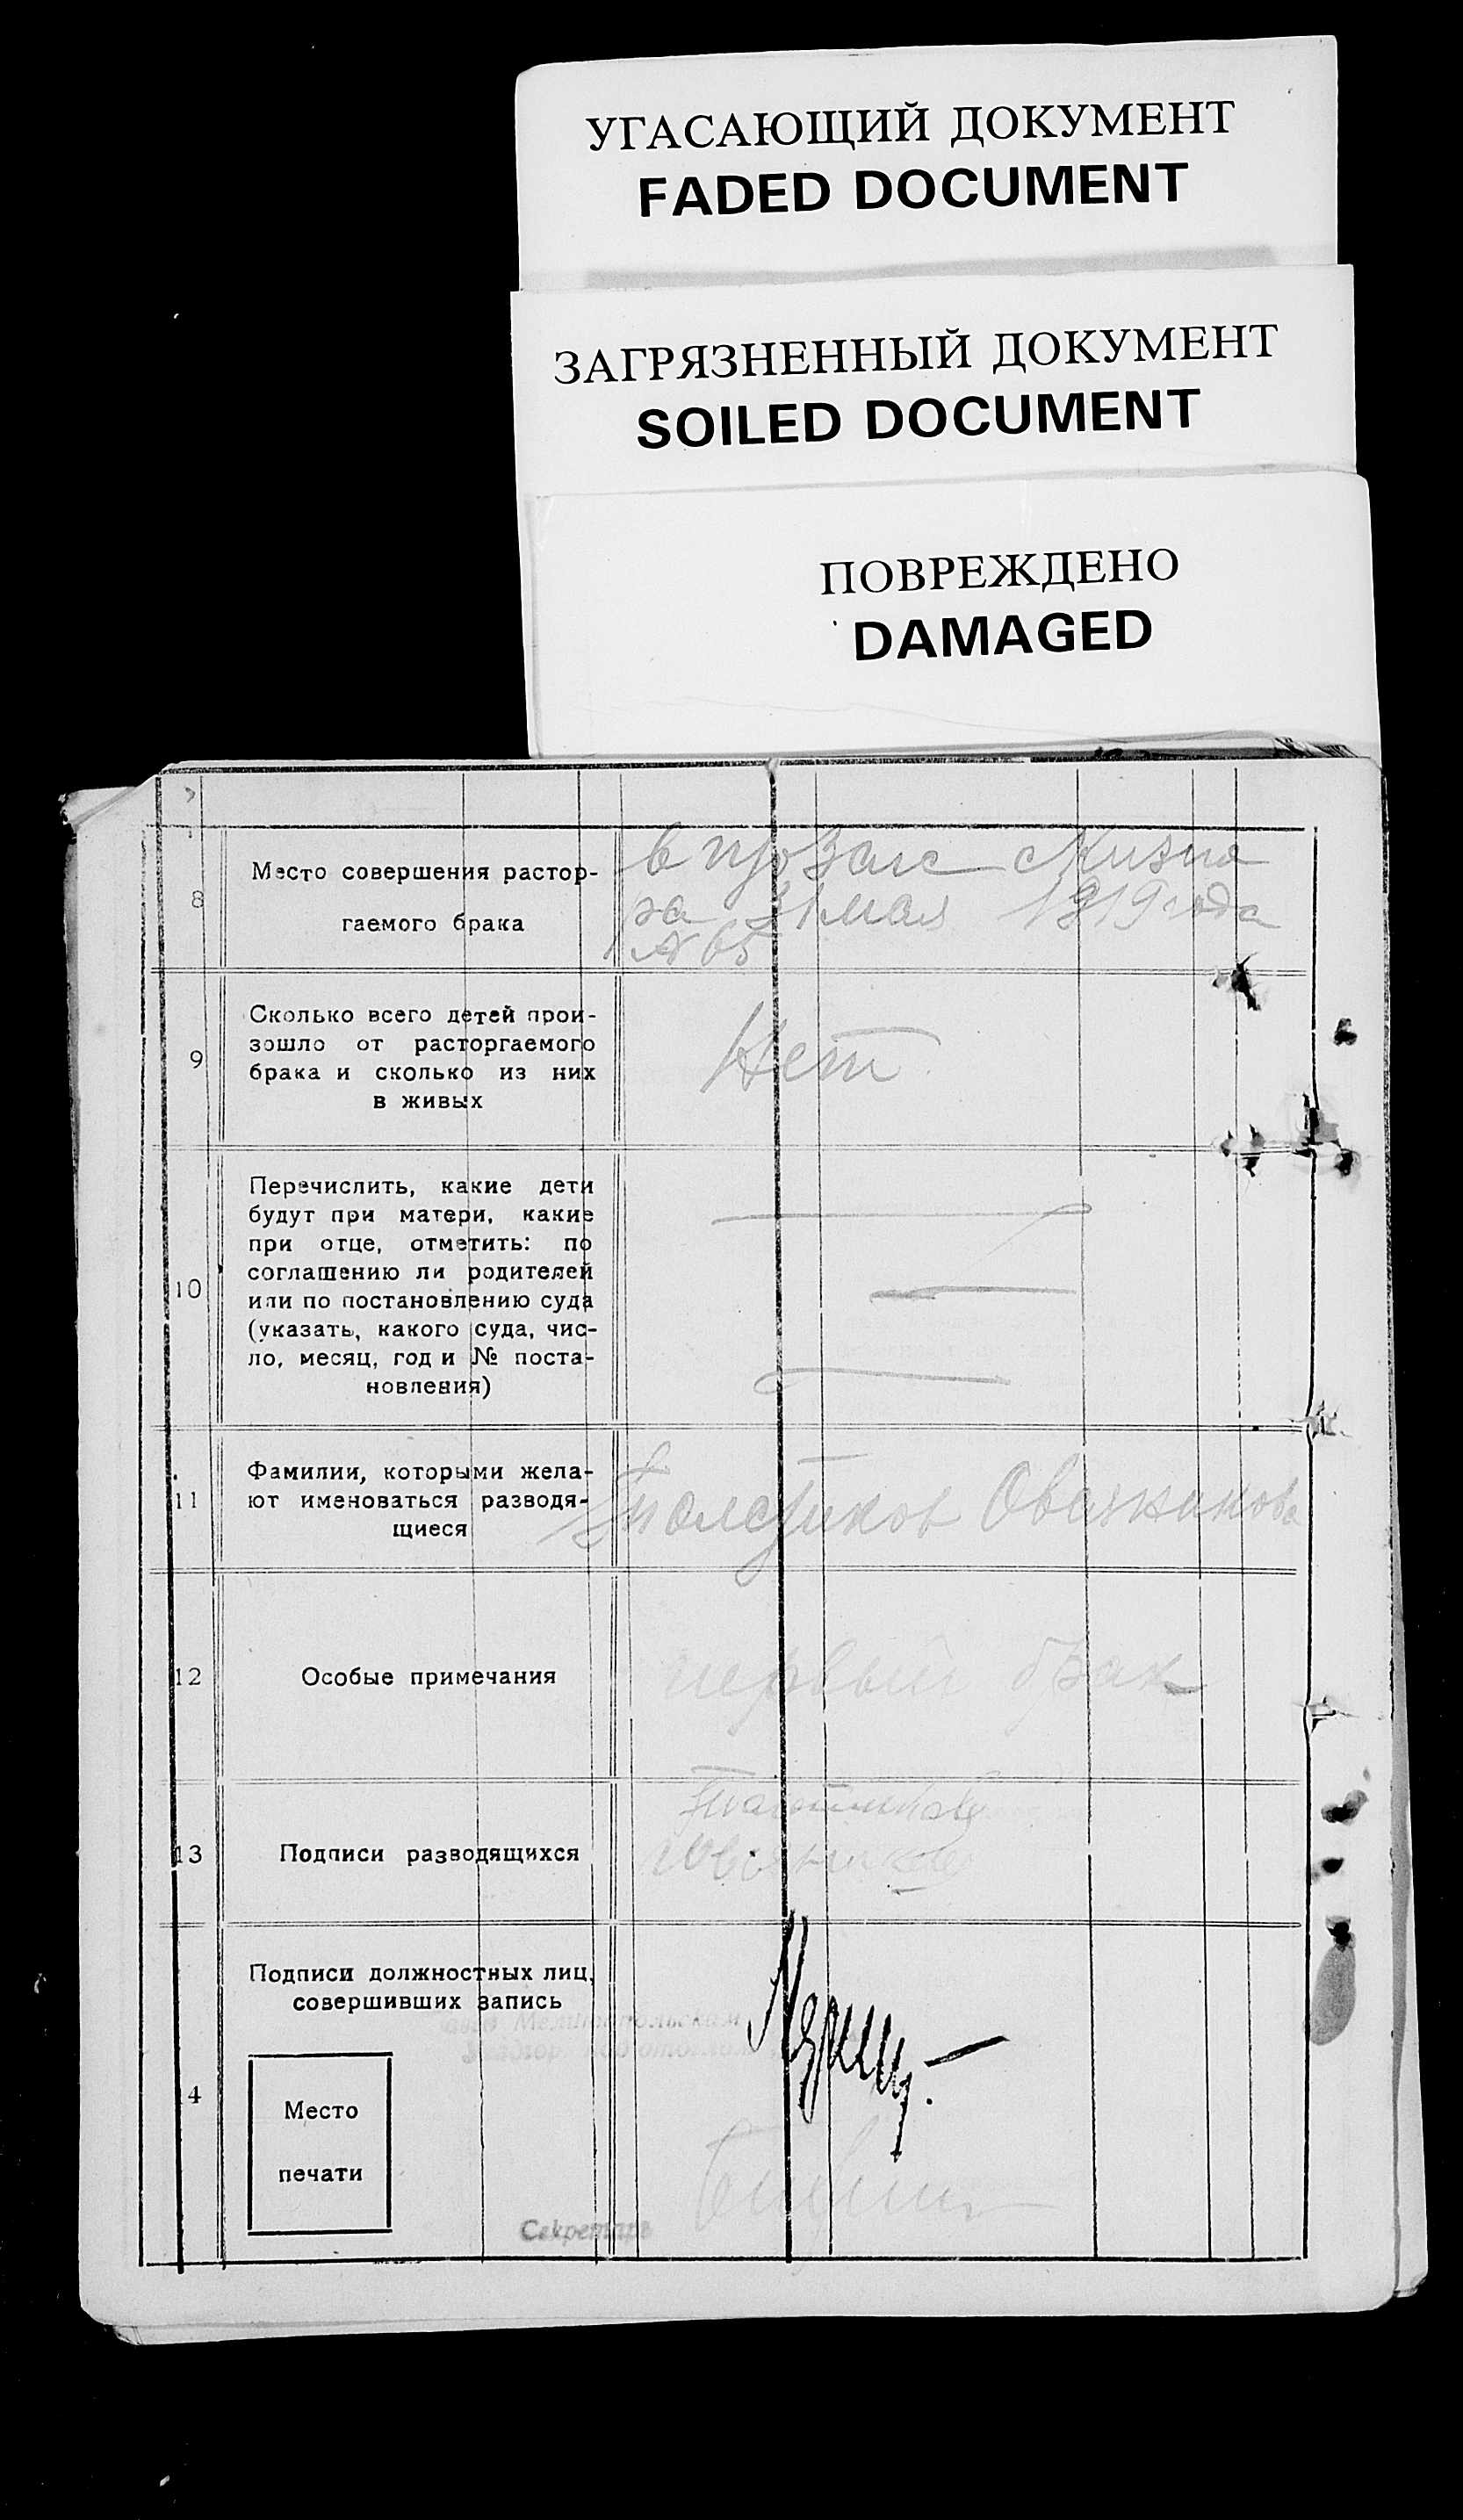 УГАСАЮЩИЙ ДОКУМЕНТ
FADED DOCUMENT
ЗАГРЯЗНЕННЫЙ ДОКУМЕНТ
SOILED DOCUMENT
ПОВРЕЖДЕНО
DAMAGED
8
Место совершения растор-
гаемого брака
в
за 31 мая 1919 года
№ 65
9
Сколько всего детей прои-
зошло от расторгаемого
брака и сколько из них
в живых
Нет
10
Перечислить, какие дети
будут при матери, какие
при отце, отметить: по
соглашению ли родителей
или по постановлению суда
(указать, какого суда, чис-
ло, месяц, год и № поста-
новления)
11
Фамилии, которыми жела-
ют именоваться разводя-
щиеся
12
Особые примечания
первый брак
13
Подписи разводящихся
4
Подписи должностных лиц,
совершивших запись
Место
печати
Секретарь